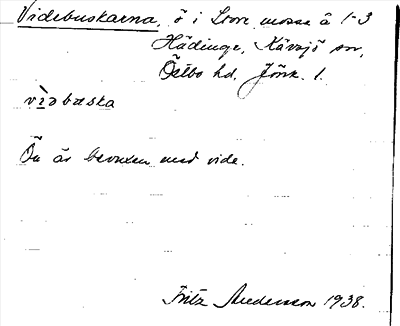 Videbuskarna, ö i Store mosse å 1-3
Hädinge, Kävsjö sn,
Östbo hd. Jönk. l.
vìdbæska
Ön är bevuxen med vide.
Fritz Andersson 1938.